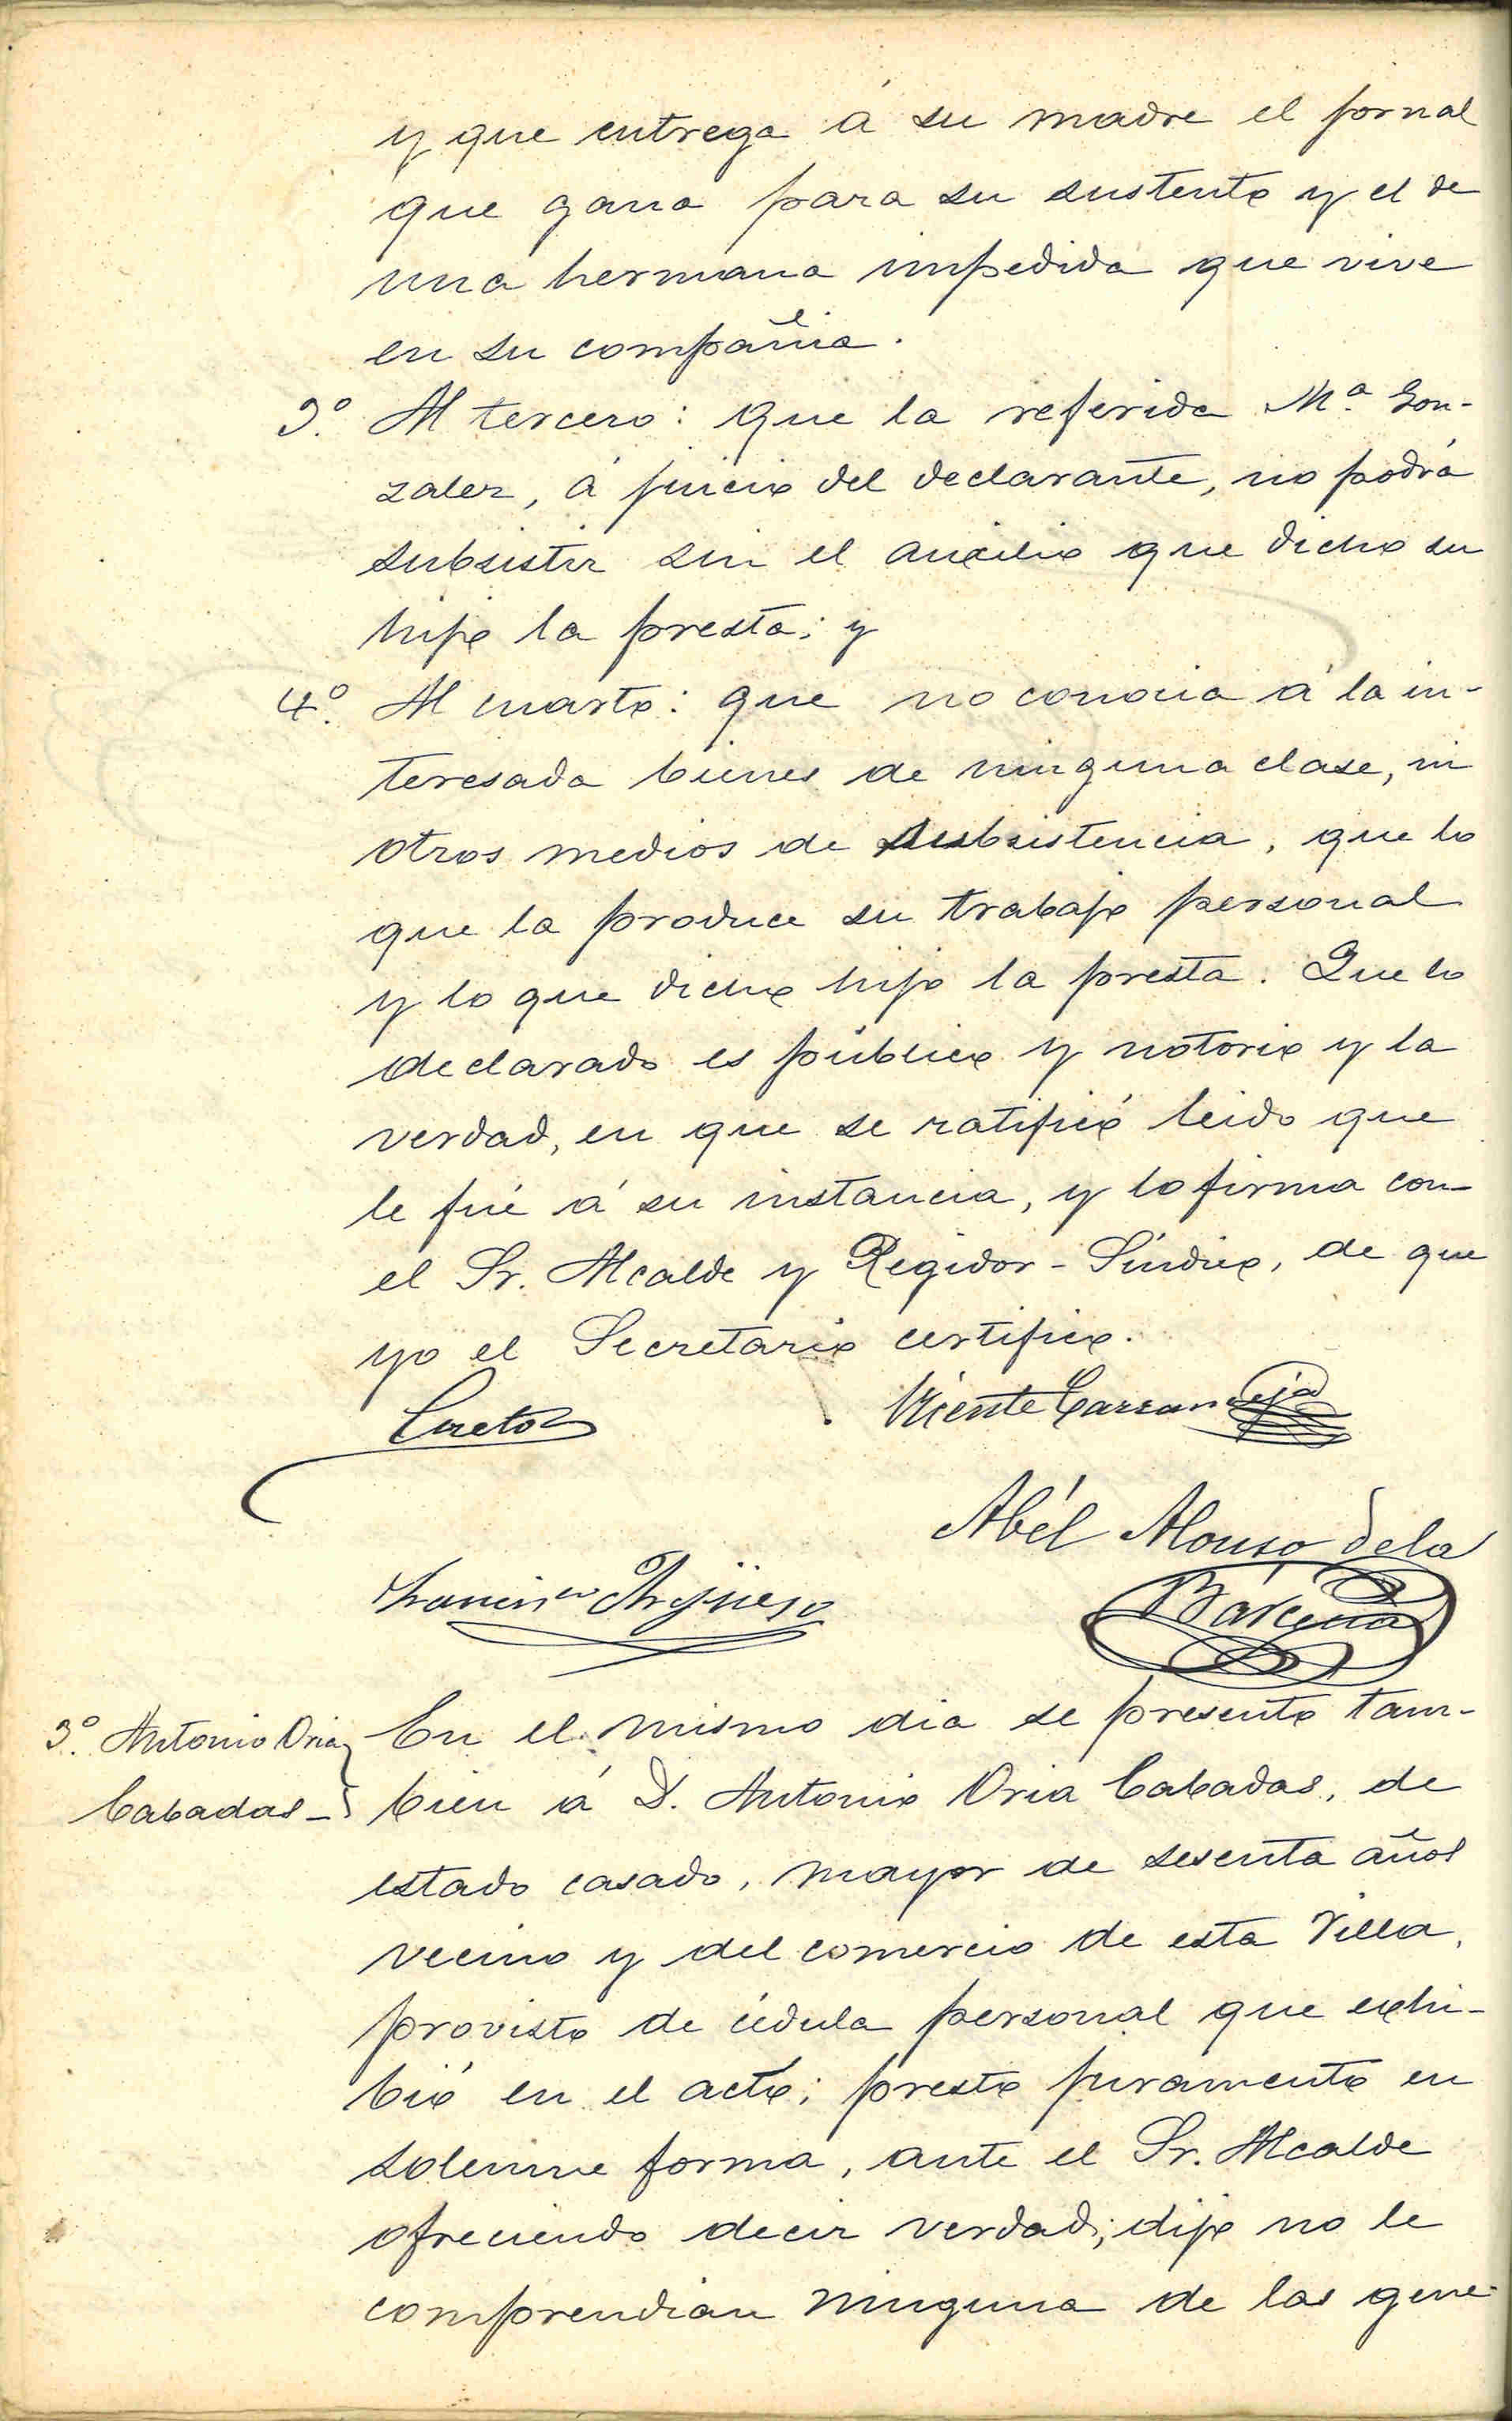 y que entrega á su madre el jornal
que gana para su sustento y el de
una hermana impedida que vive
en su compañia.
3º. Al tercero: que la referida Mª. Gon-
zalez, á juicio del declarante, no podrá
subsistir sin el auxilio que dicho su
hijo la presta; y
4º. Al cuarto: que no conocia á la in-
teresada bienes de ninguna clase, ni
otros medios de subsistencia, que lo
que la produce su trabajo personal
y lo que dicho hijo la presta. Que lo
declarado es público y notorio y la
verdad, en que se ratificó leido que
le fué á su instancia, y lo firma con
el Sr. Alcalde y Regidor-Síndico, de que
yo el Secretario certifico.
Cueto
Vicente Carranceja
Abél Alonso de la
Bárcena
Argüeso
3º. Antonio Oria
Cabadas
En el mismo dia se presentó tam-
bien á D. Antonio Oria Cabadas, de
estado casado, mayor de sesenta años
vecino y del comercio de esta Villa,
provisto de cédula personal que exhi-
bió en el acto; prestó juramento en
solemne forma, ante el Sr. Alcalde
ofreciendo decir verdad; dijo no le
comprendian ninguna de las gene-